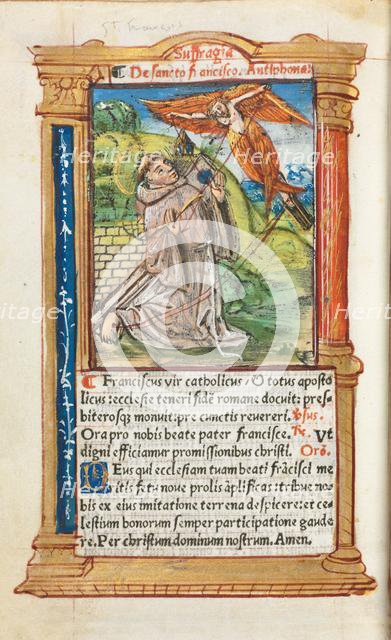 St. Francis
Suffragia
¶ De sancto francisco. Antiphona.
¶ Franciscus vir catholicus / & totus aposto
licus : ecclesie teneri fidē romane docuit: pres-
biterosq; monuit: pre cunctis revereri. Vsus.
Ora pro nobis beate pater francisce. ℞. Vt
digni efficiamur promissionibus christi. Orō.
DEus qui ecclesiam tuam beati frācisci me
ritis fetu nove prolis āplificas: tribue no-
bis ex eius imitatione terrena despicere: et ce-
lestium bonorum semper participatione gaude
re. Per christum dominum nostrum. Amen.
Heritage
Heritage
Heritage
Heritage
Heritage
Heritage